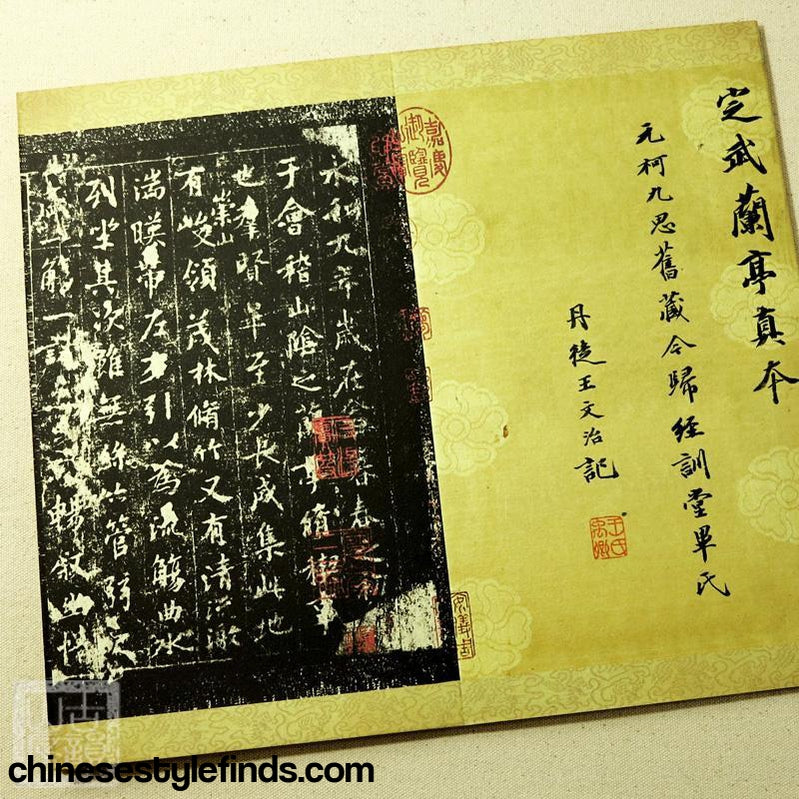 定武蘭亭真本
元柯九思舊藏今歸經訓堂畢氏
丹徒王文治記
王氏禹卿
嘉慶御覽
永和九年歲在暮春之初
于會稽山陰之蘭亭脩禊事
也羣賢畢至少長咸集此地
有崇山峻領茂林脩竹又有清流激
湍暎帶左右引以為流觴曲水
列坐其次雖無絲竹管弦之
一觴一詠暢叙幽情
chinesestylefinds.com